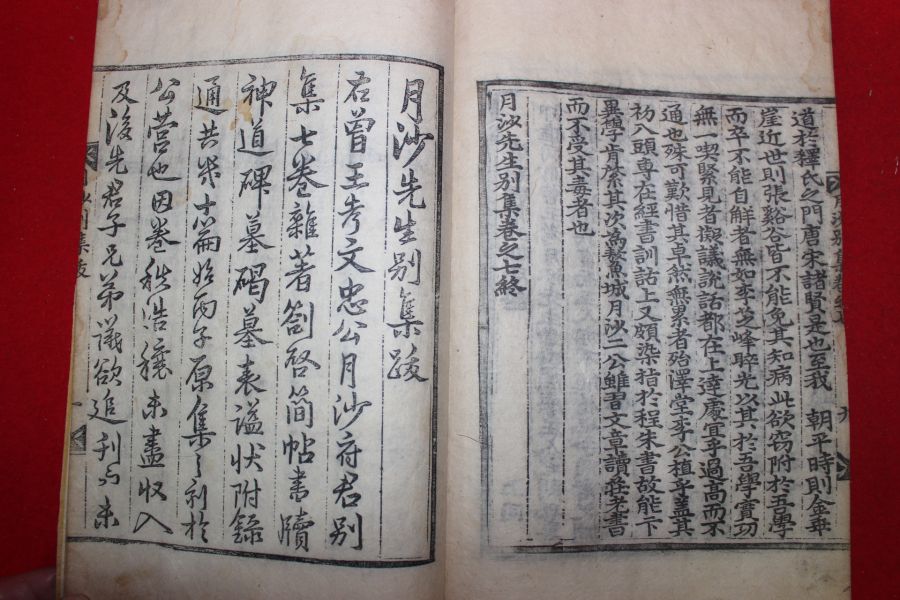 道於釋氏之門唐宋諸賢是也至我 朝平時則金
崖近世則張谿谷皆不能免其知病此欲窃附於吾學
而卒不能自解者無如李芝峰睟光以其於吾學實功
無一喫緊見者擬議說話都在上達處宜乎過高而不
通也殊可歎惜其卓然無累者殆澤堂李公植乎盖其
初入頭專在經書訓詁上又頗染指於程朱書故能下
異學肯綮其次爲鰲城月沙二公雖習文章讀莊老書
而不受其毒者也
月沙先生別集卷之七終
月沙先生别集跋
右曾王考文忠公月沙府君别
集七卷雜著劄啓簡帖書牘
神道碑墓碣墓表謚狀附錄
通共幾十篇始丙子原集之刻於
公營也因卷秩浩穰未盡收入
及後先君子兄弟議欲追刊而未